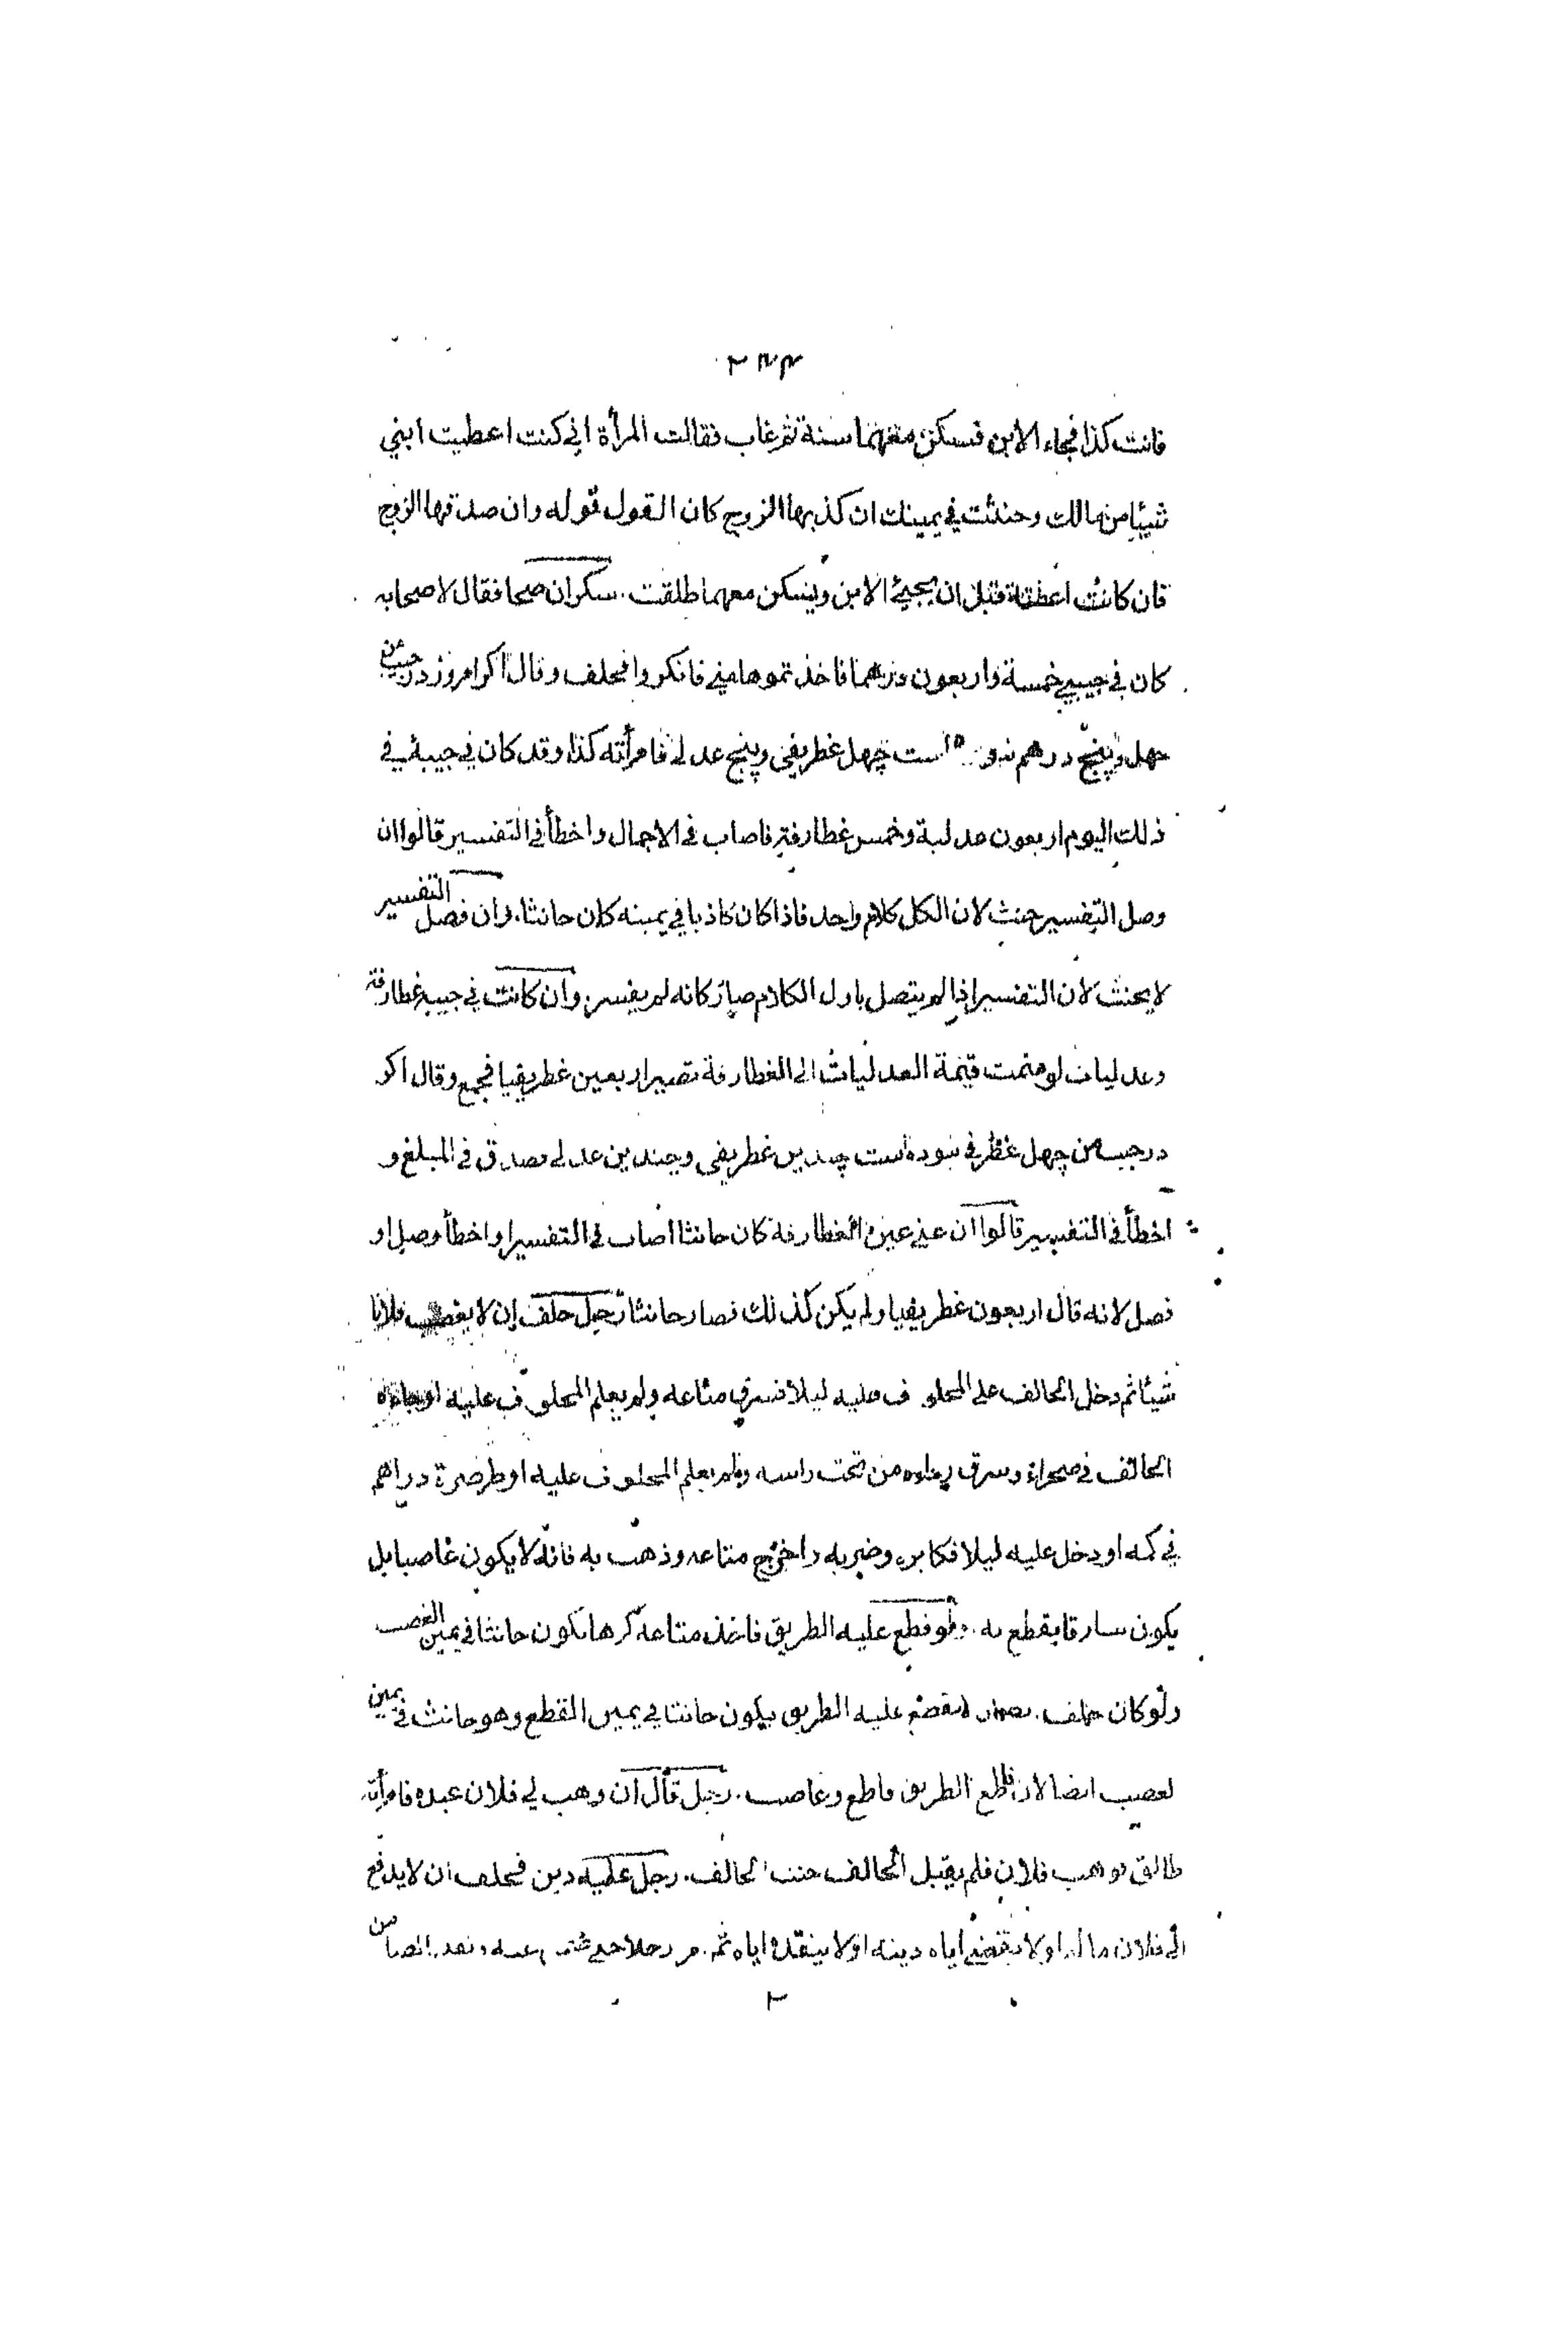 ٢٤٤
فانت كذا فجاء الابن فسكن معهما سنة ثم غاب فقالت المرأة اني كنت اعطيت ابني
شيئا من مالك وحنثت في يمينك ان كذبها الزوج كان القول قوله وان صدقها الزوج
فان كانت اعطته قبل ان يجيئ الابن ويسكن معهما طلقت . سكران صحا فقال لاصحابه
كان في جيبي خمسة واربعون درهما فاخذتموها مني فانكروا فحلف وقال اكر امروز در جيب من
چهل و پنج درهم نبوده است چهل غطريفي وپنج عدلي فامرأته كذا وقد كان في جيبه في
ذلك اليوم اربعون عدلية وخمس غطارفة فاصاب في الاجمال واخطأ في التفسير قالوا ان
وصل التفسير حنث لان الكل كلام واحد فاذا كان كاذبا في يمينه كان حانثا . وان فصل التفسير
لا يحنث لان التفسير اذا لم يتصل باول الكلام صار كانه لم يفسر . وان كانت في جيبه غطارفة
وعدليات لو ضمت قيمة العدليات الى الغطارفة تصير اربعين غطريفيا فجمع وقال اكر
در جيب من چهل غطرفي نبوده است چندين غطريفي وچندين عدلي فصدق في المبلغ و
اخطأ في التفسير قالوا ان عنى عين الغطارفة كان حانثا اصاب في التفسير او اخطأ وصل او
فصل لانه قال اربعون غطريفيا ولم يكن كذلك فصار حانثا رجل حلف ان لا يغصب فلانا
شيئا ثم دخل الحالف على المحلوف عليه ليلا فسرق متاعه ولم يعلم المحلوف عليه
الحالف في صحراء وسرق رداءه من تحت راسه ولم يعلم المحلوف عليه او طر صرة دراهم
في كمه او دخل عليه ليلا فكابره وضربه واخرج متاعه وذهب به فانه لا يكون غاصبا بل
يكون سارقا يقطع به . ولو قطع عليه الطريق فاخذ متاعه كرها يكون حانثا في يمين الغصب
ولو كان حلف . لا يقطع عليه الطريق يكون حانثا في يمين القطع وهو حانث في يمين
الغصب ايضا لان قاطع الطريق قاطع وغاصب . رجل قال ان وهب لي فلان عبده فامرأته
طالق فوهب فلان فلم يقبل الحالف حنث الحالف . رجل عليه دين فحلف ان لا يدفع
الى فلان ماله او لا يقضي اياه دينه او لا ينقده اياه ثم امر رجلا من
٢